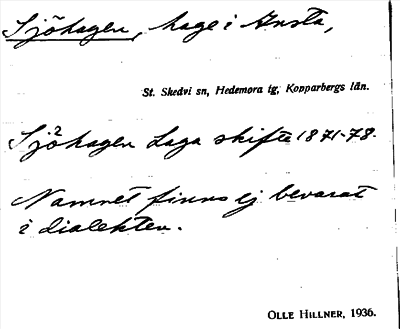 Sjöhagen, hage i Ansta,
St. Skedvi sn, Hedemora tg, Kopparbergs län.
Sjöhagen Laga skifte 1871-78.
Namnet finns ej bevarat
i dialekten.
OLLE HILLNER, 1936.